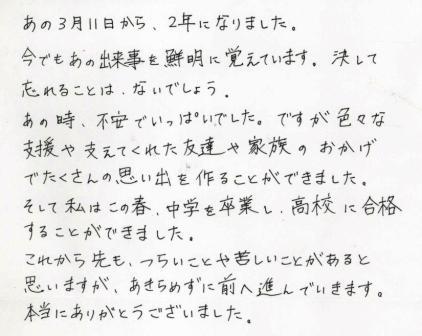 あの3月11日から、2年になりました。
今でもあの出来事を鮮明に覚えています。決して
忘れることは、ないでしょう。
あの時、不安でいっぱいでした。ですが色々な
支援や支えてくれた友達や家族のおかげ
でたくさんの思い出を作ることができました。
そして私はこの春、中学を卒業し、高校に合格
することができました。
これから先も、つらいことや苦しいことがあると
思いますが、あきらめずに前へ進んでいきます。
本当にありがとうございました。